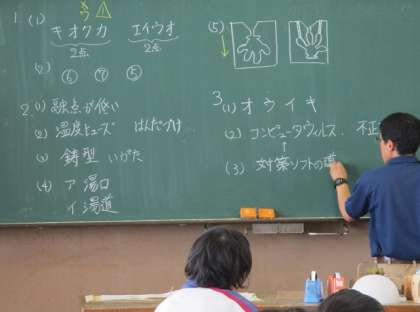 1. (1) キオクカ エイウオ
2点 2点
(2) ⑥ ⑦ ⑤
2. (1) 融点が低い
(2) 温度ヒューズ はんだづけ
(3) 鋳型 いがた
(4) ア 湯口
イ 湯道
(5)
3 (1) オウイキ
(2) コンピュータウィルス. 不正
(3) 対策ソフトの